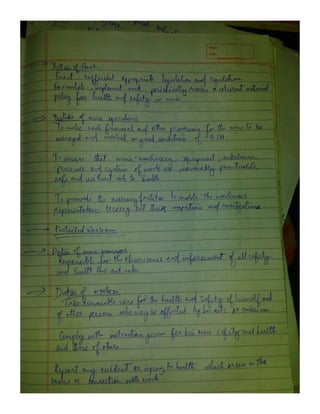 Duties of Govt.
Enact sufficient appropriate legislation and regulation
Formulate, implement and periodically review a coherent national
policy for health and safety in mines
Duties of mine operators
To make such financial and other provisions for the mine to be
managed and worked in good conditions of OSH
To ensure that mine machinery, equipment, substance
processes and systems of work are reasonably practicable
safe and without risk to health
To provide the necessary facilities to enable the workmen's
representatives to carry out their inspection and investigations
Protected workmen
Duties of mine managers
Responsible for the observance and enforcement of all safety
and health and rules
Duties of workers
Take reasonable care for the health and safety of himself and
of other persons who may be affected by his acts or omission
Comply with instructions given for his own safety and health
and those of others
Report any accident or injury to health which arises in the
course or connection with work